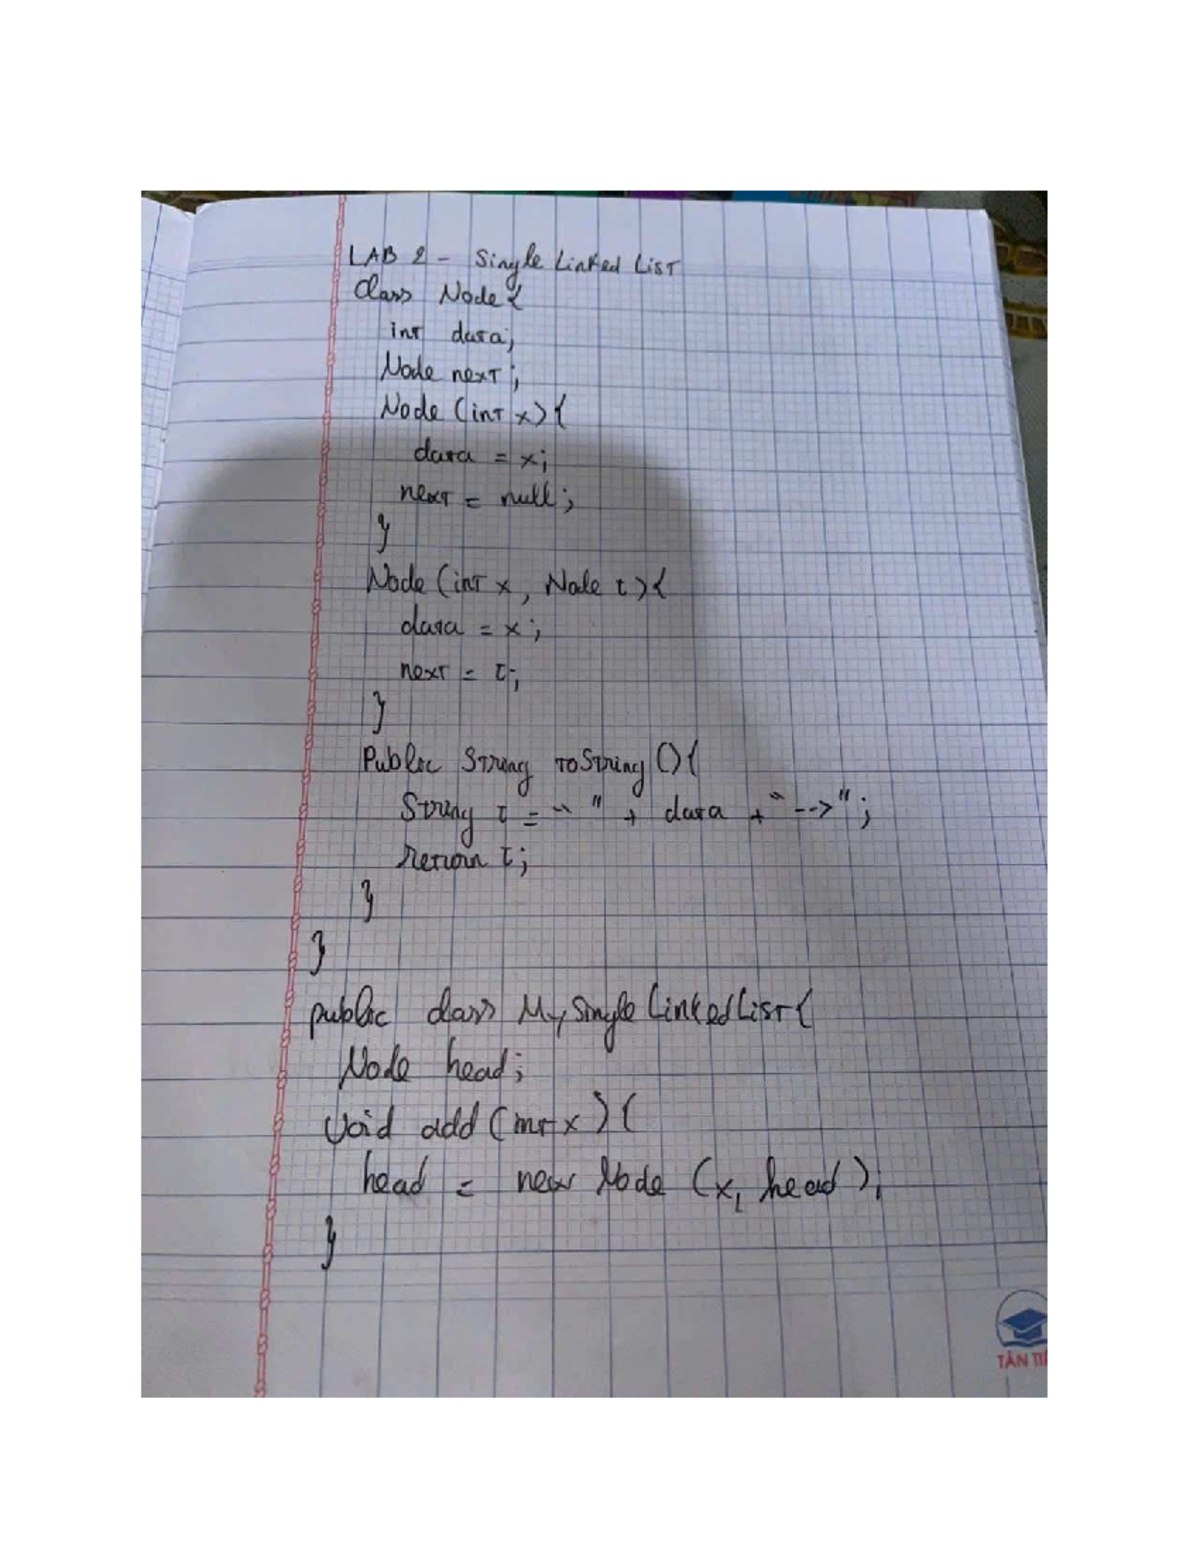 LAB 2 - Single Linked List
Class Node {
int data;
Node next;
Node (int x) {
data = x;
next = null;
}
Node (int x, Node t) {
data = x;
next = t;
}
Public String toString () {
String t = " " + data + "-->";
return t;
}
}
public class MySingleLinkedList {
Node head;
Void add (int x) {
head = new Node (x, head);
}
TÂN